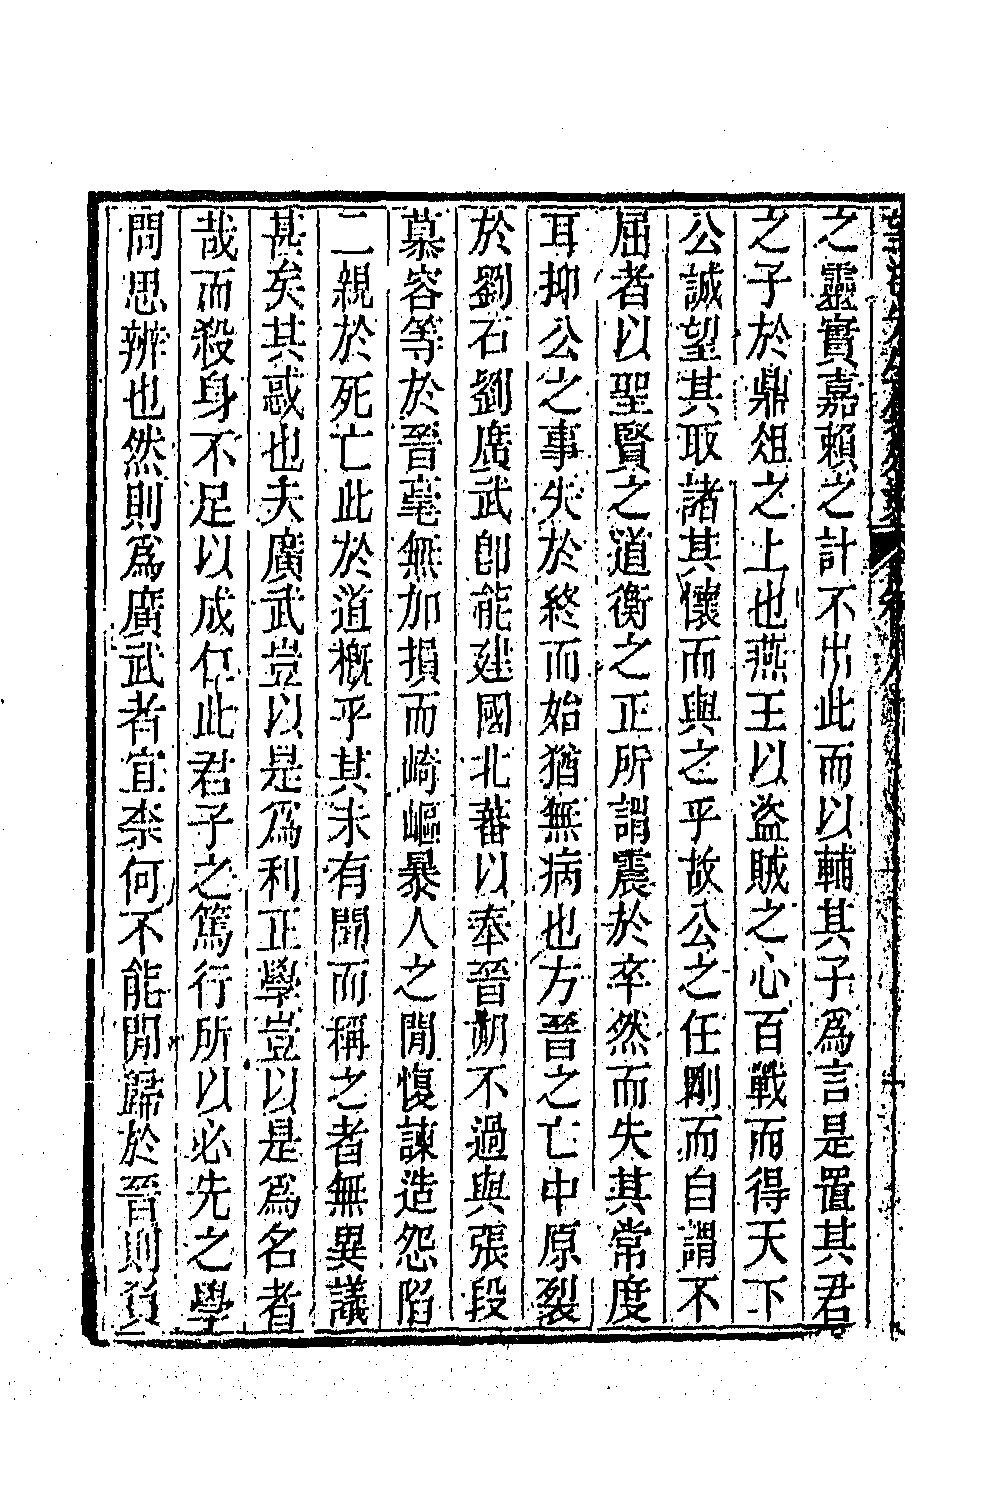 之靈實嘉賴之計不出此而以輔其子為言是置其君
之子於鼎俎之上也燕王以盜賊之心百戰而得天下
公誠望其取諸其懷而與之乎故公之任剛而自謂不
屈者以聖賢之道衡之正所謂震於卒然而失其常度
耳抑公之事失於終而始猶無病也方晉之亡中原裂
於劉石劉廣武卽能建國北蕃以奉晉朔不過與張段
慕容等於晉毫無加損而崎嶇暴人之閒愎諫造怨陷
二親於死亡此於道槪乎其未有聞而稱之者無異議
甚矣其惑也夫廣武豈以是為利正學豈以是為名者
哉而殺身不足以成仁此君子之篤行所以必先之學
問思辨也然則為廣武者宜柰何不能閒歸於晉則